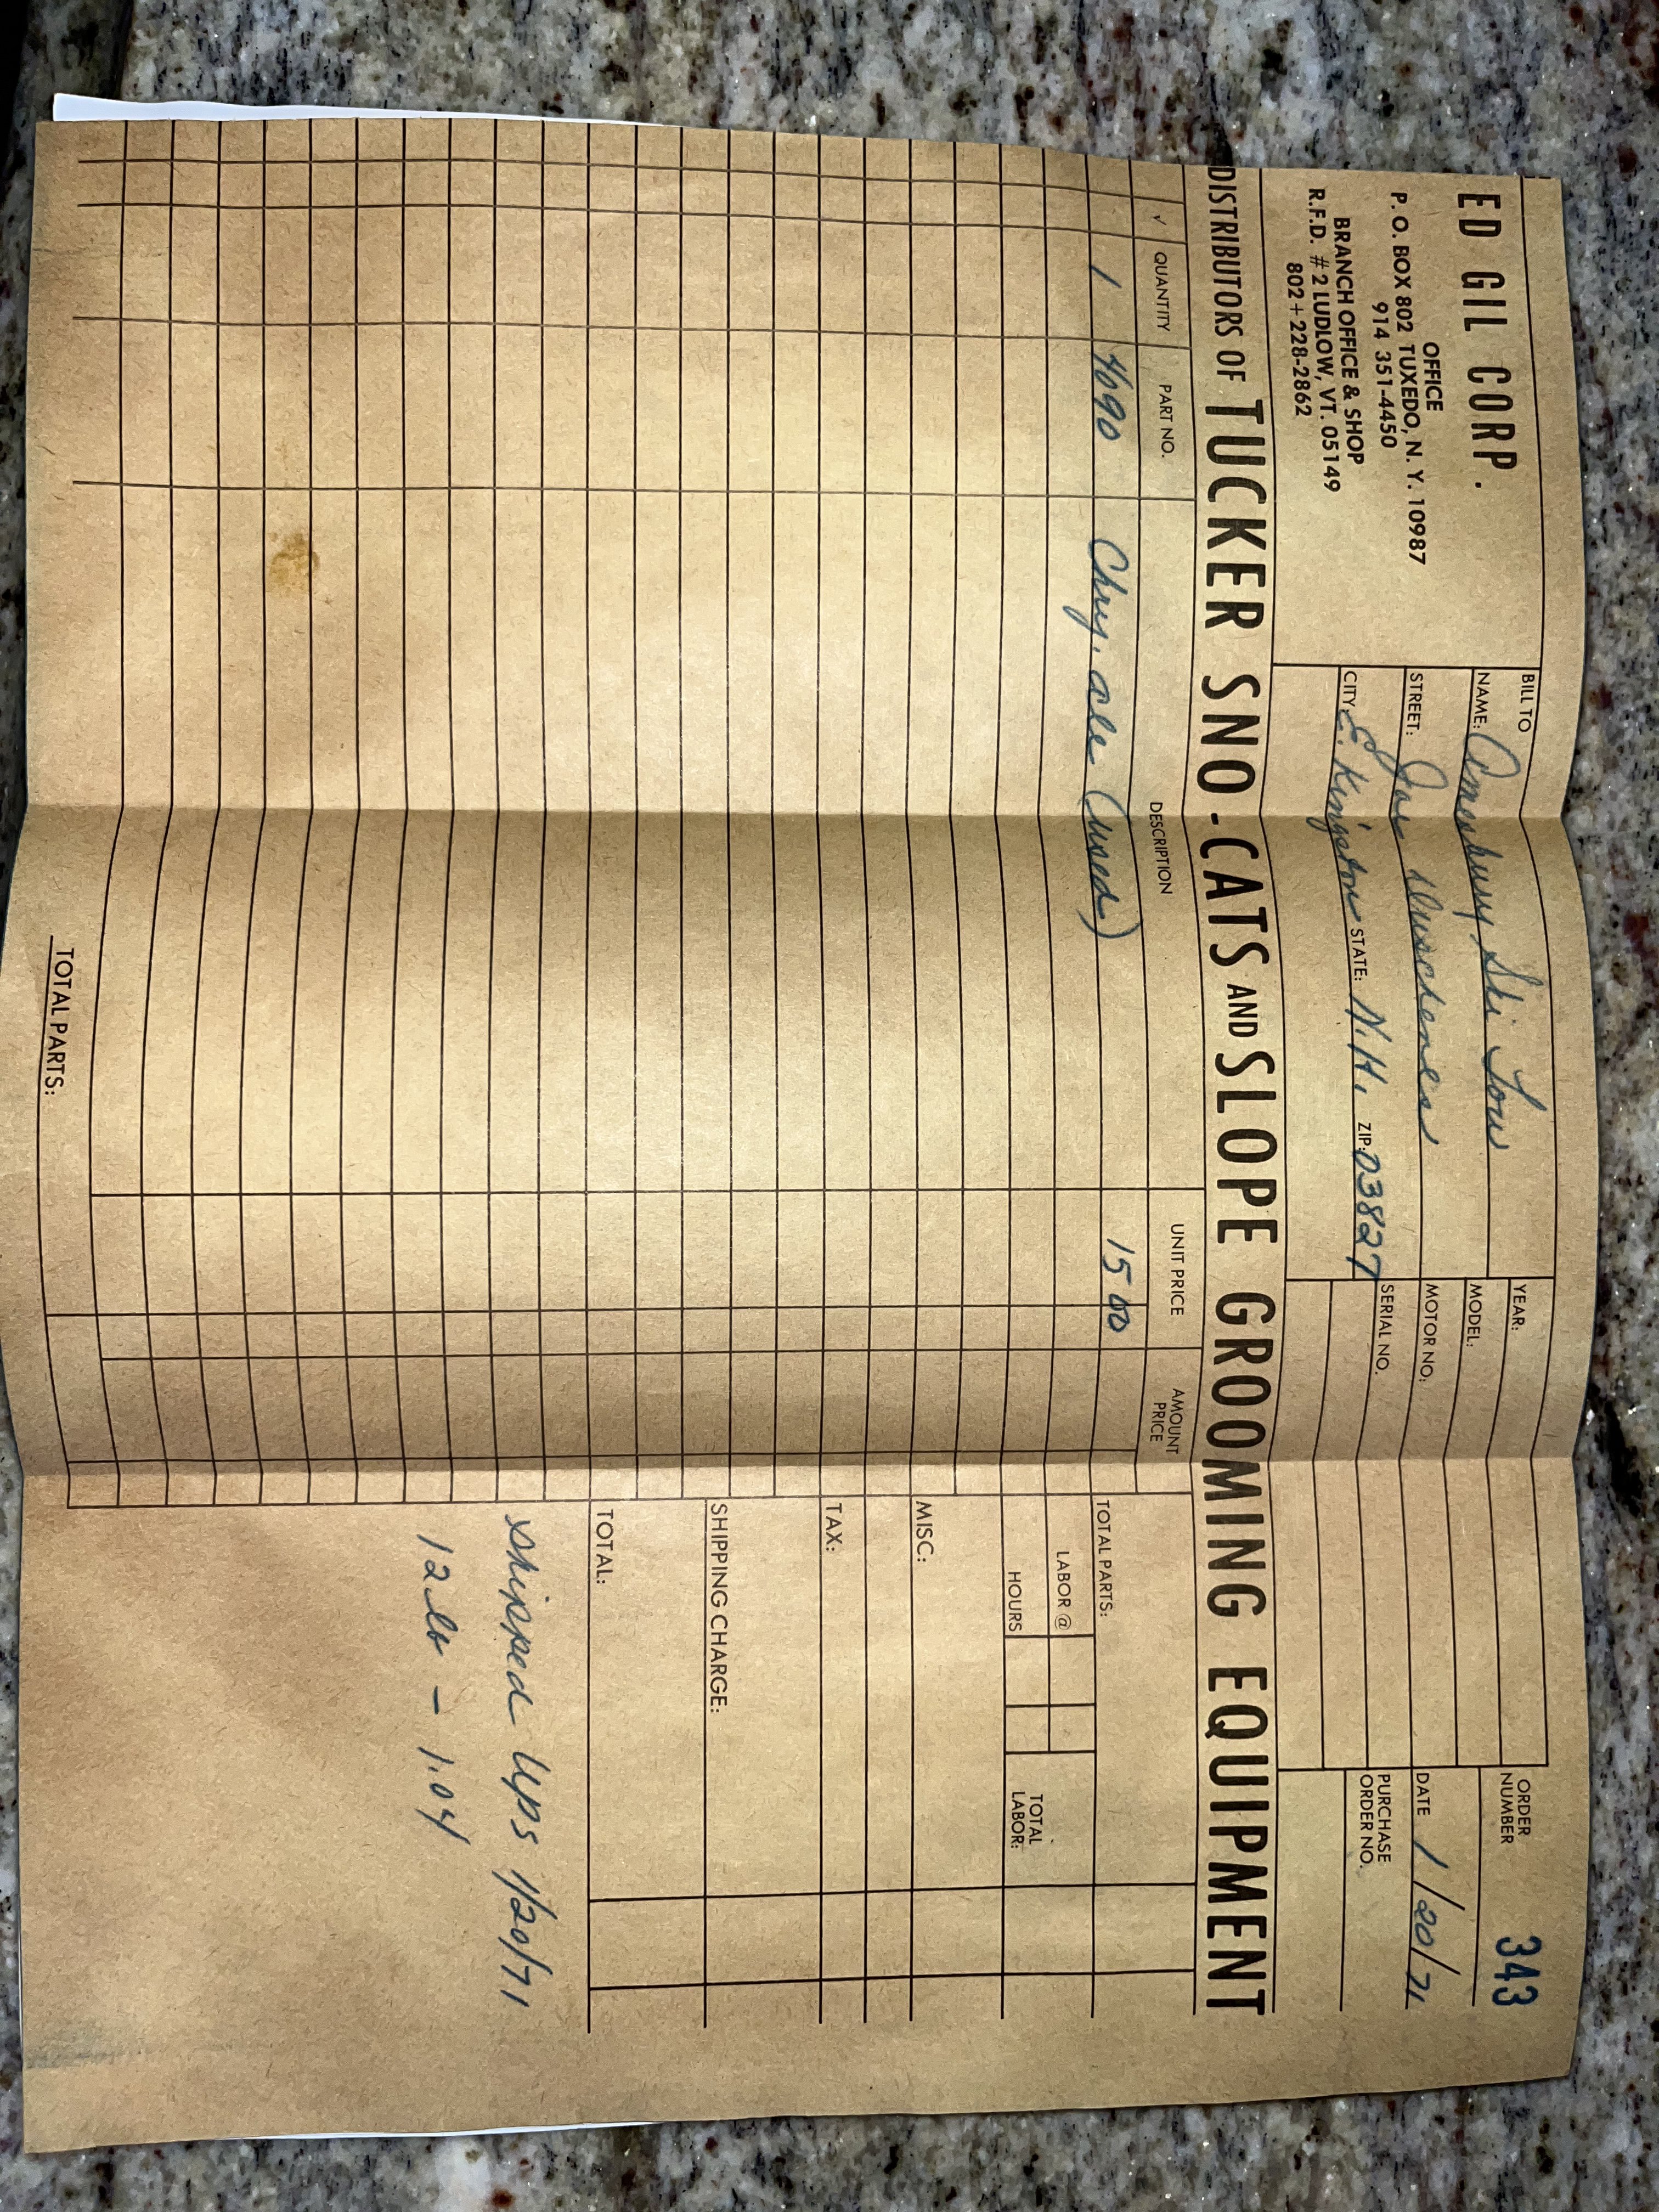 ED GIL CORP.
OFFICE
P. O. BOX 802 TUXEDO, N. Y. 10987
914 351-4450
BRANCH OFFICE & SHOP
R.F.D. # 2 LUDLOW, VT. 05149
802+228-2862
BILL TO
NAME: Amesbury Ski Tow
STREET: Joe
CITY: E. Kingston STATE: N.H. ZIP: 03827
YEAR:
MODEL:
MOTOR NO:
SERIAL NO.
ORDER NUMBER 343
DATE 1/20/71
PURCHASE ORDER NO.
DISTRIBUTORS OF TUCKER SNO-CATS AND SLOPE GROOMING EQUIPMENT
√ QUANTITY PART NO. DESCRIPTION UNIT PRICE AMOUNT PRICE
1 4690 Chry. (used) 15 00
TOTAL PARTS:
LABOR @
HOURS
TOTAL LABOR:
MISC:
TAX:
SHIPPING CHARGE:
TOTAL:
shipped UPS 1/20/71
12 lb - 1.04
TOTAL PARTS: